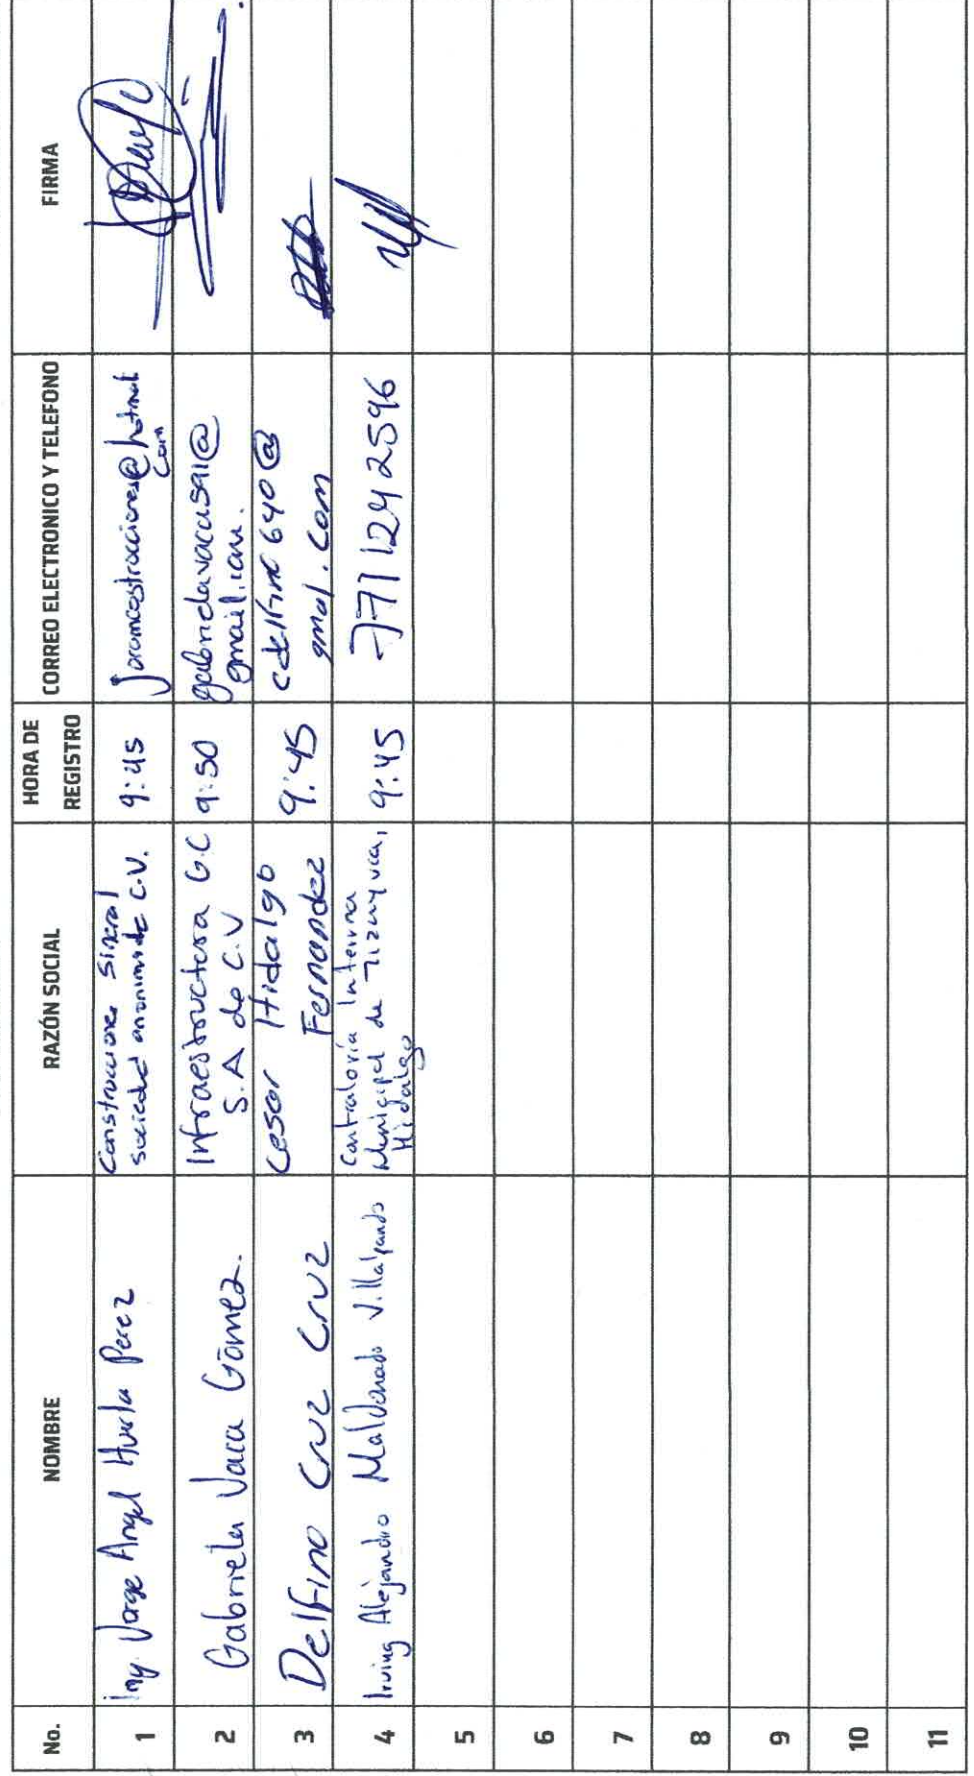 No. NOMBRE RAZÓN SOCIAL HORA DE REGISTRO CORREO ELECTRONICO Y TELEFONO FIRMA
1 Ing. Jorge Angel Huerta Perez Construcciones Sineral sociedad anonima de C.V. 9:45 @hotmail com
2 Gabriela Vaca Gómez. Infraestructura G.C S.A de C.V 9:50 gabrielavaca591@ gmail.com.
3 Delfino Cruz Cruz Cesar Hidalgo Fernandez 9:45 cdelfino640@ gmal.com
4 Irving Alejandro Maldonado Villalpando Contraloría Interna Municipal de Tizayuca, Hidalgo 9:45 771242596
5
6
7
8
9
10
11